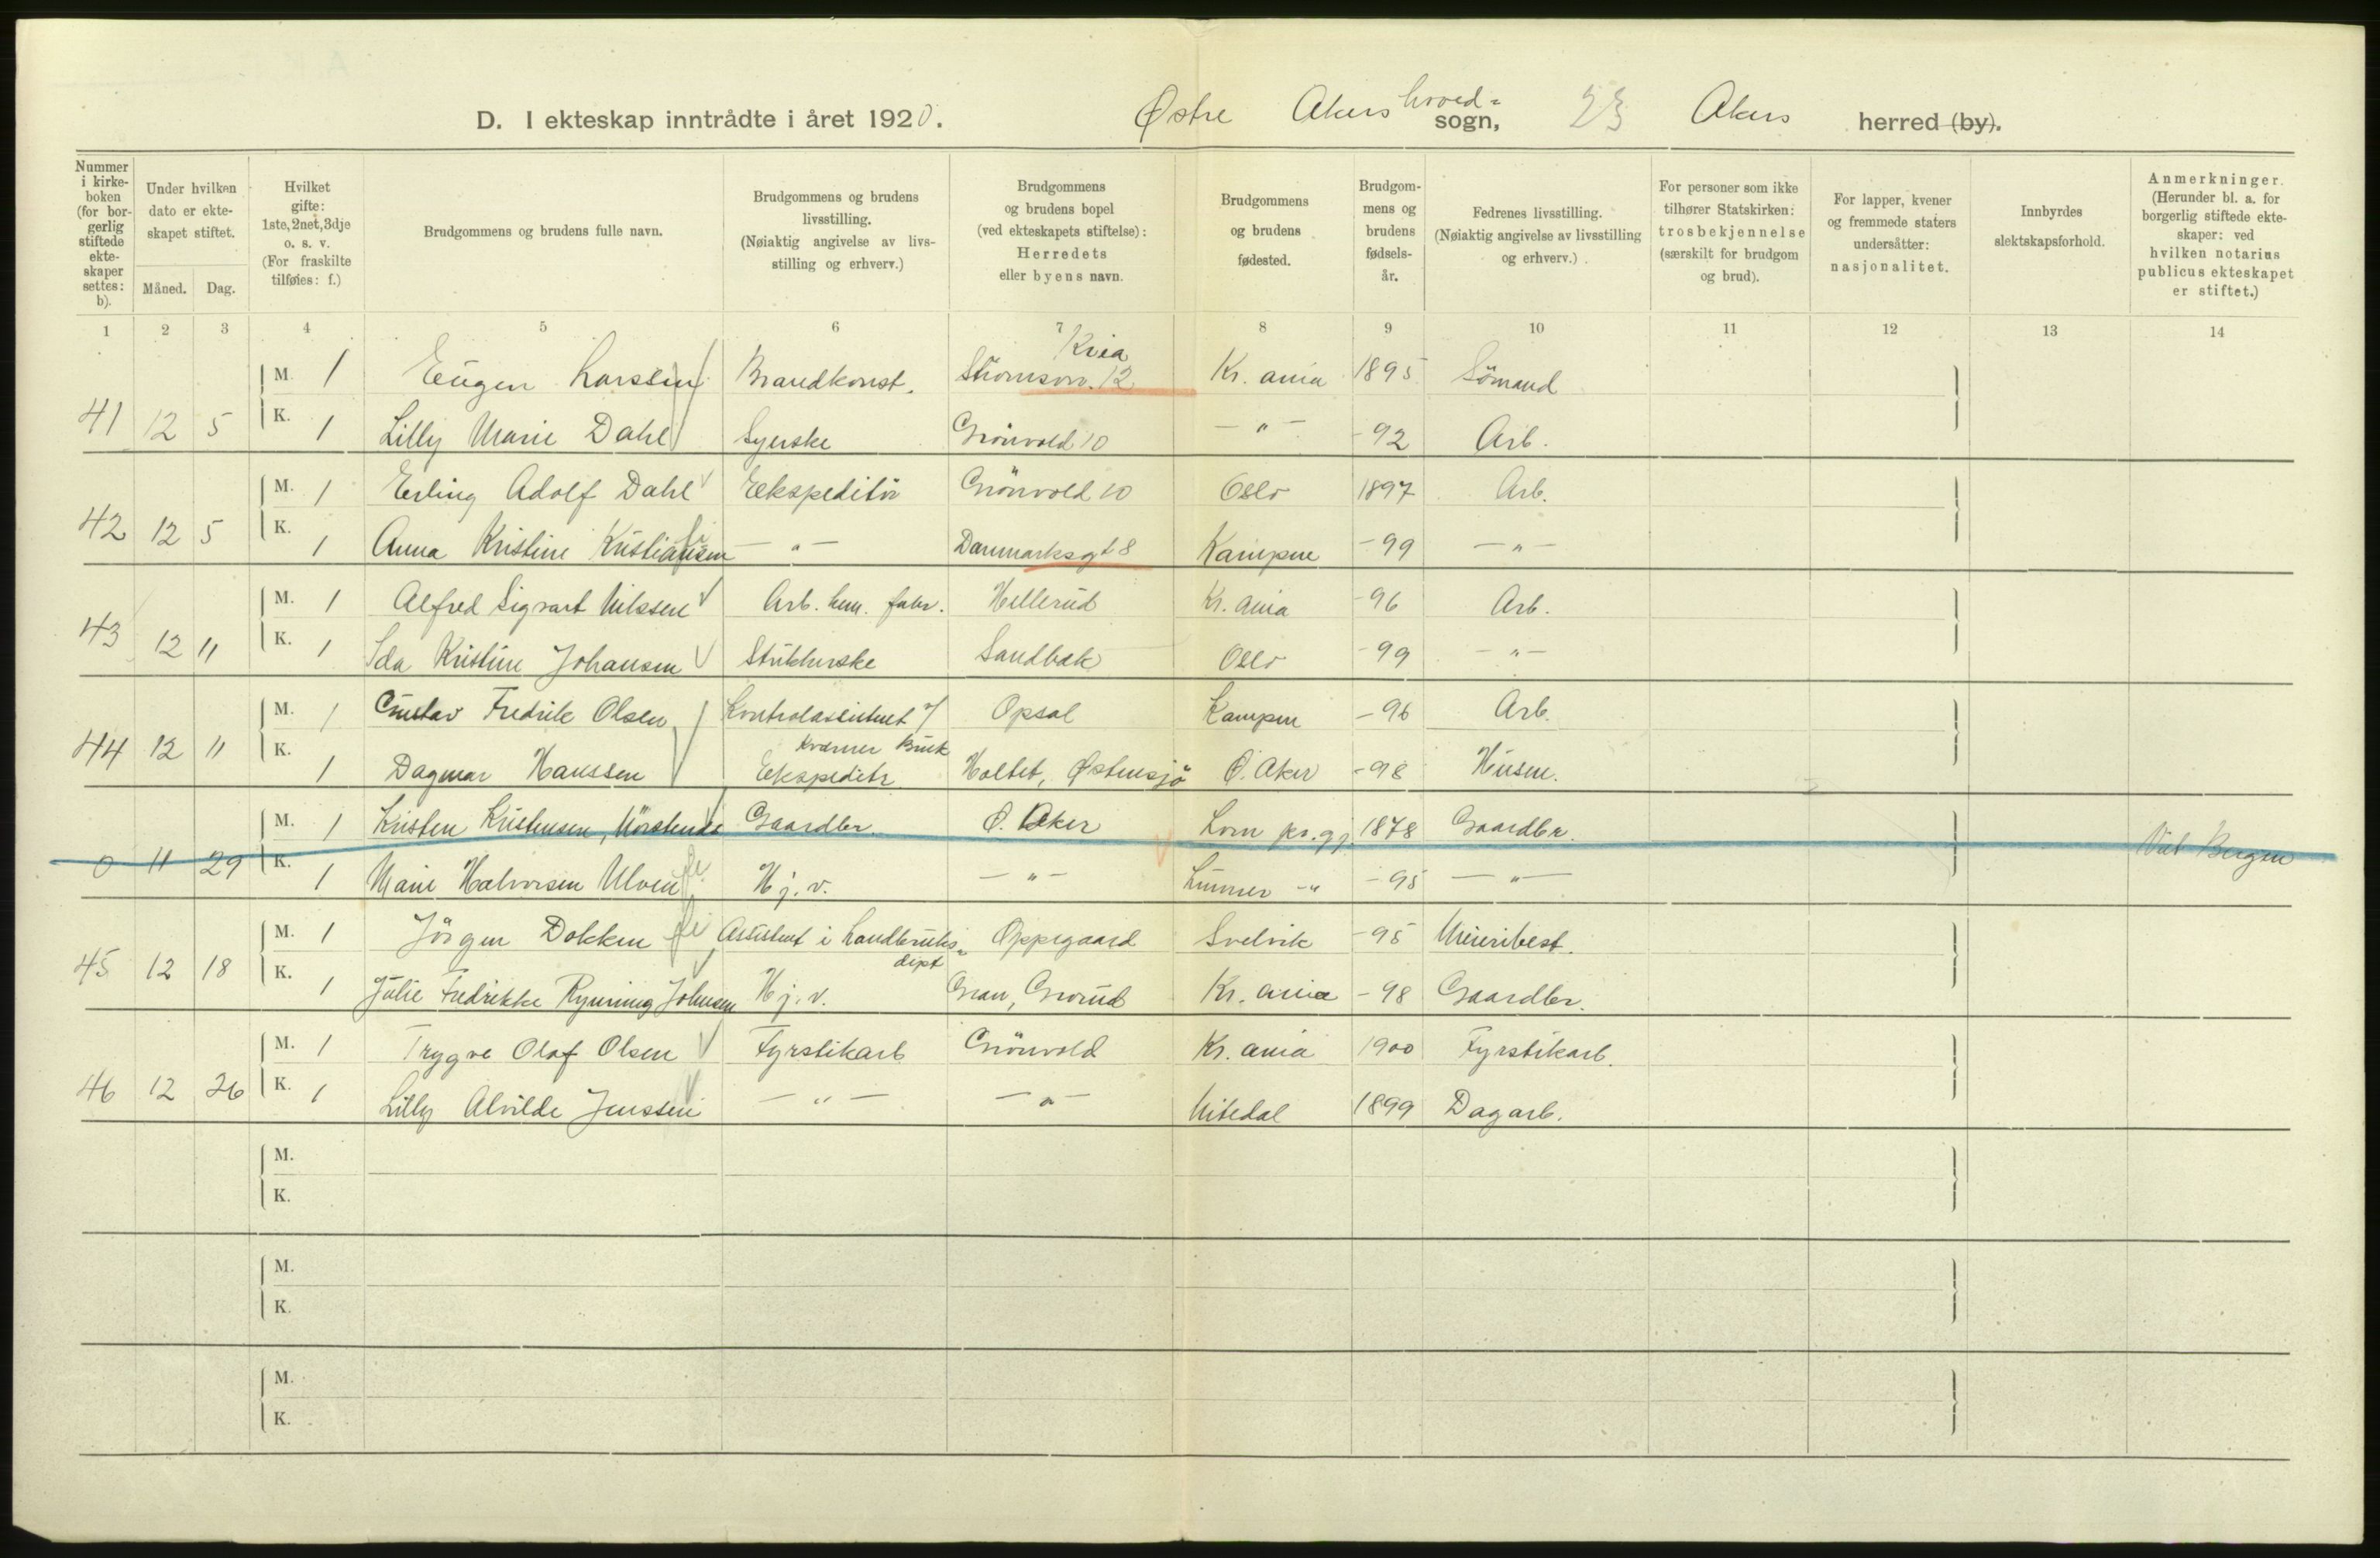 D. I ekteskap inntrådte i året 1920. Østre Akers hoved= sogn, 23 Akers herred (by).
Nummer i kirke-boken (for bor-gerlig stiftede ekte-skaper settes: b).
Under hvilken dato er ekte-skapet stiftet.
Måned. Dag.
Hvilket gifte: 1ste, 2net, 3dje o. s. v. (For fraskilte tilføies: f.)
Brudgommens og brudens fulle navn.
Brudgommens og brudens livsstilling. (Nøiaktig angivelse av livs-stilling og erhverv.)
Brudgommens og brudens bopel (ved ekteskapets stiftelse): Herredets eller byens navn.
Brudgommens og brudens fødested.
Brudgom-mens og brudens fødsels-år.
Fedrenes livsstilling. (Nøiaktig angivelse av livsstilling og erhverv.)
For personer som ikke tilhører Statskirken: trosbekjennelse (særskilt for brudgom og brud).
For lapper, kvener og fremmede staters undersåtter: nasjonalitet.
Innbyrdes slektskapsforhold.
Anmerkninger. (Herunder bl. a. for borgerlig stiftede ekte-skaper: ved hvilken notarius publicus ekteskapet er stiftet.)
1 2 3 4 5 6 7 8 9 10 11 12 13 14
Kria
M. 1 Eugen Larssen Brandkonst. 12 Kr.ania 1895 Sömand
41 12 5 K. 1 Lilly Marie Dahl Syerske Grönvold 10 -"- -92 Arb.
M. 1 Erling Adolf Dahl Ekspeditör Grönvold 10 Oslo 1897 Arb.
42 12 5 K. 1 Anna Kristine Kristiansen -"- Danmarksgt 8 Kampen -99 -"-
M. 1 Alfred Sigvart Nilssen Arb. kem. fabr. Hellerud Kr.ania -96 Arb.
43 12 11 K. 1 Ida Kristine Johansen Strikkerske Sandbak Oslo -99 -"-
M. 1 Gustav Fredrik Olsen Kontrolassistent / Opsal Kampen -96 Arb.
Kværner Bruk
44 12 11 K. 1 Dagmar Hanssen Ekspeditr. Holtet, Østensjö Ö. Aker -98 Husm.
M. 1 Kristen Kristensen, Gaardbr. Ö. Aker Lom pr.gj. 1878 Gaardbr.
0 11 29 K. 1 Marie Halvorsen Ulven Hj. v. -"- Lunner -"- -95 -"- Vid Bergen
M. 1 Jörgen Dokken Assistent i Landbruks= Oppegaard Svelvik -95 Meieribest.
dept
45 12 18 K. 1 Julie Fredrikke Rynning Johnsen Hj. v. Gran, Grorud Kr.ania -98 Gaardbr.
M. 1 Trygve Olaf Olsen Fyrstikarb Grönvold Kr.ania 1900 Fyrstikarb.
46 12 26 K. 1 Lilly Alvilde Jenssen -"- -"- Nitedal 1899 Dagarb.
M.
K.
M.
K.
M.
K.